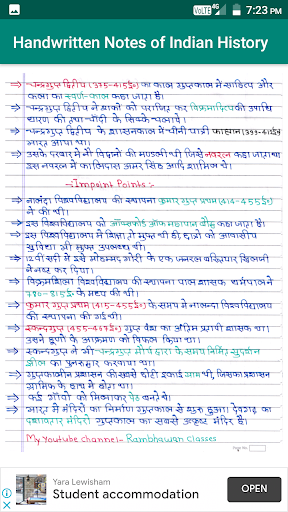 VoLTE 4G 7:23 PM
Handwritten Notes of Indian History
⇒ चन्द्रगुप्त द्वितीय (375-415ई०) का काल गुप्तकाल में साहित्य और
कला का स्वर्ण-काल कहा जाता है।
⇒ चन्द्रगुप्त द्वितीय ने शकों को पराजित कर विक्रमादित्य की उपाधि
धारण की तथा चाँदी के सिक्के चलाये।
⇒ चन्द्रगुप्त द्वितीय के शासनकाल में चीनी यात्री फाह्यान (399-414ई०
भारत आया था।
⇒ उसके दरबार में नौ विद्वानों की मण्डली थी जिसे नवरत्न कहा जाता था
इस नवरत्न में कालिदास अमर सिंह आदि शामिल थे।
-: Impoint Points :-
⇒ नालंदा विश्वविद्यालय की स्थापना कुमार गुप्त प्रथम (414-455ई०)
ने की थी।
⇒ इस विश्वविद्यालय को ऑक्सफोर्ड ऑफ महायान बौद्ध कहा जाता है।
⇒ इस विश्वविद्यालय में शिक्षा तो मुफ्त थी ही छात्रों को आवासीय
सुविधा भी मुफ्त उपलब्ध थी।
⇒ 12वीं सदी में इसे मोहम्मद गोरी के एक जनरल बख्तियार खिलजी
ने नष्ट कर दिया।
⇒ विक्रमशिला विश्वविद्यालय की स्थापना पाल शासक धर्मपाल ने
780-815ई० के मध्य की थी।
⇒ कुमार गुप्त प्रथम (415-455ई०) के समय में नालन्दा विश्वविद्यालय
की स्थापना की गई थी।
⇒ स्कन्दगुप्त (455-467ई०) गुप्त वंश का अंतिम प्रतापी शासक था।
उसने हूणों के आक्रमण को विफल किया था।
⇒ स्कन्दगुप्त ने भी चन्द्रगुप्त मौर्य द्वारा के समय निर्मित सुदर्शन
झील का पुनरुद्धार करवाया था।
⇒ गुप्तकालीन प्रशासन की सबसे छोटी इकाई ग्राम थी, जिसका प्रशासन
ग्रामिक के हाथ में होता था।
⇒ कई गाँवों को मिलाकर पेठ बनते थे।
⇒ भारत में मंदिरों का निर्माण गुप्तकाल से शुरू हुआ। देवगढ़ का
दशावतार मंदिर गुप्तकाल का सबसे उत्कृष्ट मंदिर है।
My Youtube channel- Rambhawan Classes
Page No.
Yara Lewisham
Student accommodation
OPEN